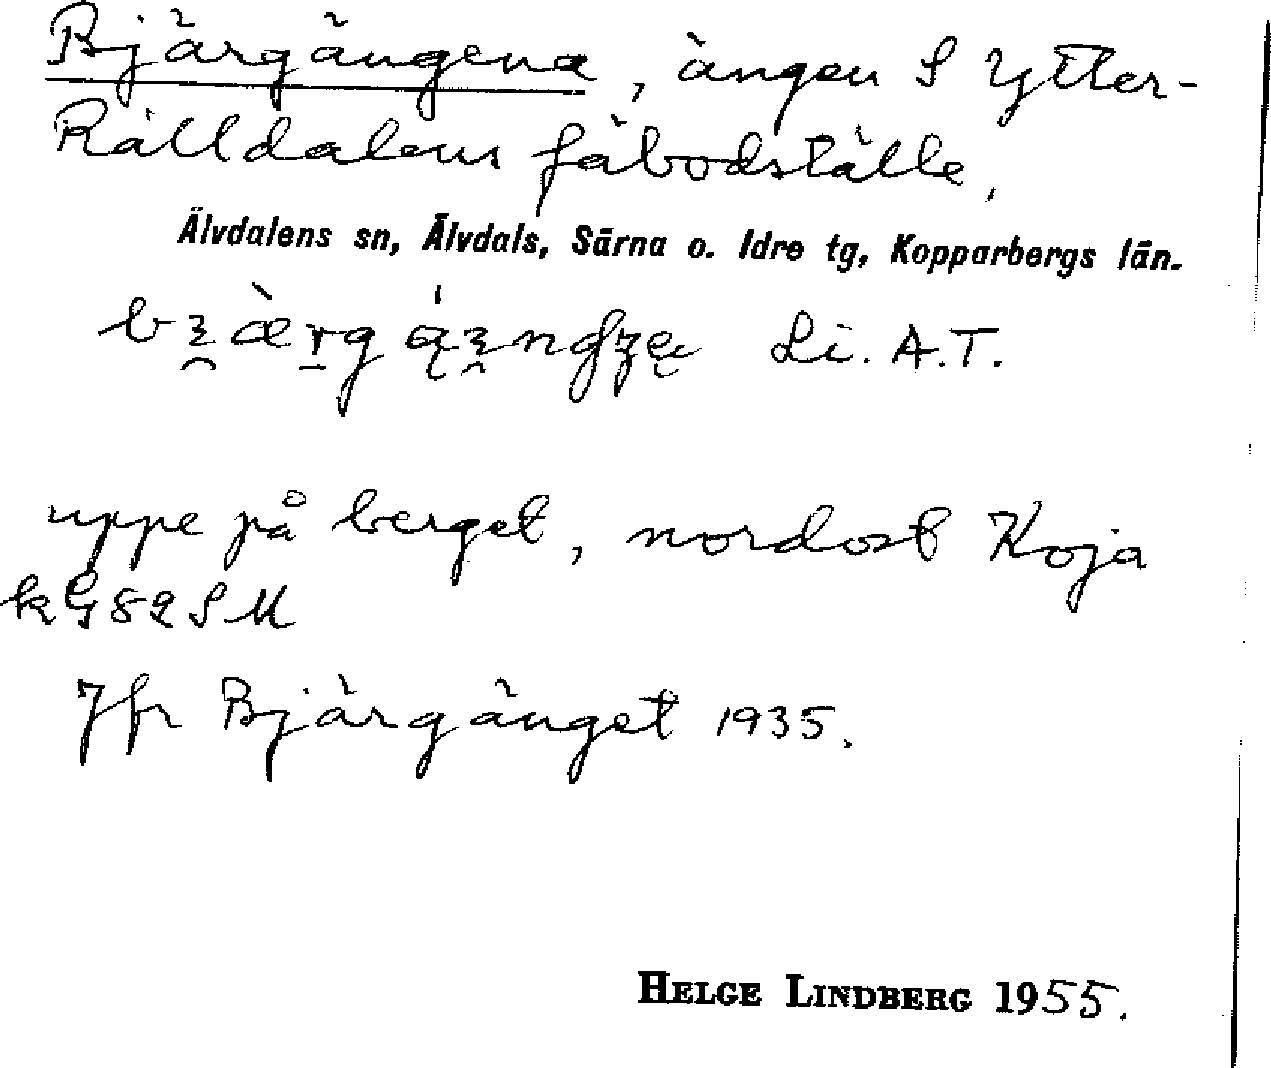 Bjärgängena, ängen S Ytter-
Rälldalens fäbodställe,
Älvdalens sn, Älvdals, Särna o. Idre tg, Kopparbergs län.
Li. A.T.
uppe på berget, nordost Koja
k G 82 S M
Jfr Bjärgänget 1935.
HELGE LINDBERG 1955.